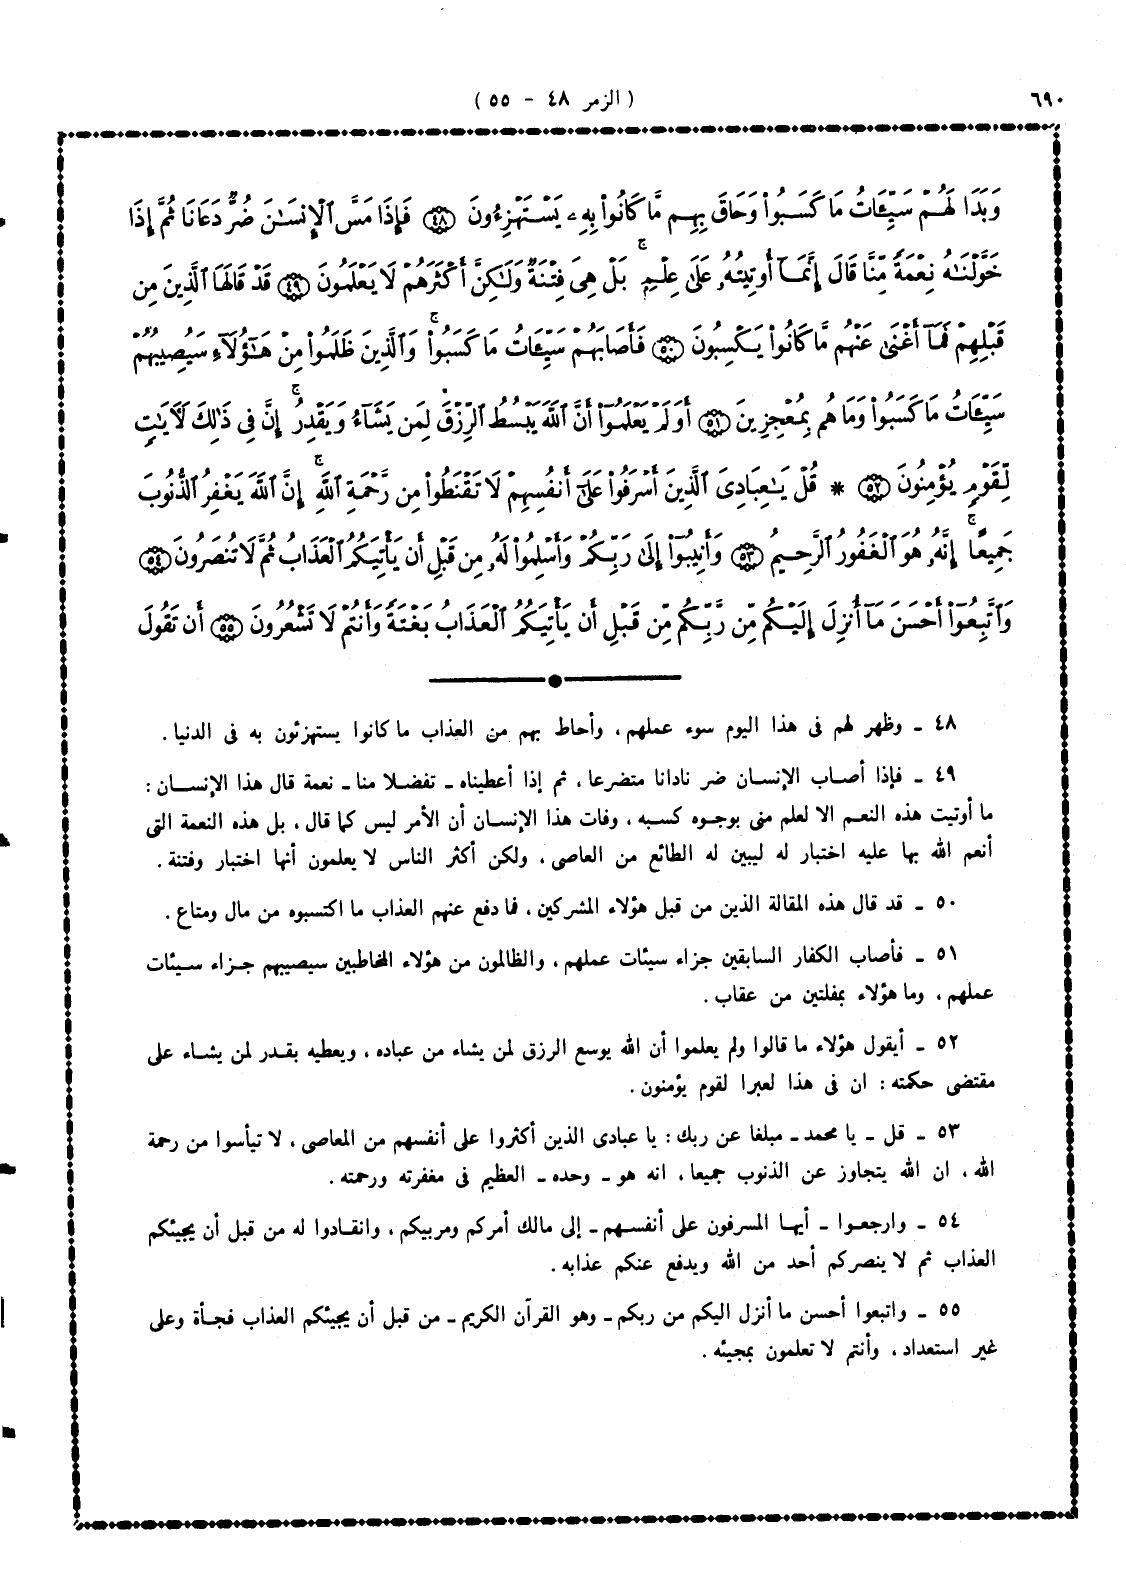 ٦٩٠
( الزمر ٤٨ - ٥٥ )
وَبَدَا لَهُمْ سَيِّـَٔاتُ مَا كَسَبُوا۟ وَحَاقَ بِهِم مَّا كَانُوا۟ بِهِۦ يَسْتَهْزِءُونَ ٤٨ فَإِذَا مَسَّ ٱلْإِنسَـٰنَ ضُرٌّ دَعَانَا ثُمَّ إِذَا
خَوَّلْنَـٰهُ نِعْمَةً مِّنَّا قَالَ إِنَّمَآ أُوتِيتُهُۥ عَلَىٰ عِلْمٍۭ ۚ بَلْ هِىَ فِتْنَةٌ وَلَـٰكِنَّ أَكْثَرَهُمْ لَا يَعْلَمُونَ ٤٩ قَدْ قَالَهَا ٱلَّذِينَ مِن
قَبْلِهِمْ فَمَآ أَغْنَىٰ عَنْهُم مَّا كَانُوا۟ يَكْسِبُونَ ٥٠ فَأَصَابَهُمْ سَيِّـَٔاتُ مَا كَسَبُوا۟ ۚ وَٱلَّذِينَ ظَلَمُوا۟ مِنْ هَـٰٓؤُلَآءِ سَيُصِيبُهُمْ
سَيِّـَٔاتُ مَا كَسَبُوا۟ وَمَا هُم بِمُعْجِزِينَ ٥١ أَوَلَمْ يَعْلَمُوٓا۟ أَنَّ ٱللَّهَ يَبْسُطُ ٱلرِّزْقَ لِمَن يَشَآءُ وَيَقْدِرُ ۚ إِنَّ فِى ذَٰلِكَ لَـَٔايَـٰتٍ
لِّقَوْمٍ يُؤْمِنُونَ ٥٢ * قُلْ يَـٰعِبَادِىَ ٱلَّذِينَ أَسْرَفُوا۟ عَلَىٰٓ أَنفُسِهِمْ لَا تَقْنَطُوا۟ مِن رَّحْمَةِ ٱللَّهِ ۚ إِنَّ ٱللَّهَ يَغْفِرُ ٱلذُّنُوبَ
جَمِيعًا ۚ إِنَّهُۥ هُوَ ٱلْغَفُورُ ٱلرَّحِيمُ ٥٣ وَأَنِيبُوٓا۟ إِلَىٰ رَبِّكُمْ وَأَسْلِمُوا۟ لَهُۥ مِن قَبْلِ أَن يَأْتِيَكُمُ ٱلْعَذَابُ ثُمَّ لَا تُنصَرُونَ ٥٤
وَٱتَّبِعُوٓا۟ أَحْسَنَ مَآ أُنزِلَ إِلَيْكُم مِّن رَّبِّكُم مِّن قَبْلِ أَن يَأْتِيَكُمُ ٱلْعَذَابُ بَغْتَةً وَأَنتُمْ لَا تَشْعُرُونَ ٥٥ أَن تَقُولَ
٤٨ ـ وظهر لهم فى هذا اليوم سوء عملهم، وأحاط بهم من العذاب ما كانوا يستهزئون به فى الدنيا .
٤٩ ـ فإذا أصاب الإنسان ضر نادانا متضرعا، ثم إذا أعطيناه ـ تفضلا منا ـ نعمة قال هذا الإنسان :
ما أوتيت هذه النعم الا لعلم منى بوجوه كسبه، وفات هذا الإنسان أن الأمر ليس كما قال، بل هذه النعمة التى
أنعم الله بها عليه اختبار له ليبين له الطائع من العاصى، ولكن أكثر الناس لا يعلمون أنها اختبار وفتنة .
٥٠ ـ قد قال هذه المقالة الذين من قبل هؤلاء المشركين، فما دفع عنهم العذاب ما اكتسبوه من مال ومتاع .
٥١ ـ فأصاب الكفار السابقين جزاء سيئات عملهم، والظالمون من هؤلاء المخاطبين سيصيبهم جزاء سيئات
عملهم، وما هؤلاء بمفلتين من عقاب .
٥٢ ـ أيقول هؤلاء ما قالوا ولم يعلموا أن الله يوسع الرزق لمن يشاء من عباده، ويعطيه بقدر لمن يشاء على
مقتضى حكمته : ان فى هذا لعبرا لقوم يؤمنون .
٥٣ ـ قل ـ يا محمد ـ مبلغا عن ربك : يا عبادى الذين أكثروا على أنفسهم من المعاصى، لا تيأسوا من رحمة
الله، ان الله يتجاوز عن الذنوب جميعا، انه هو ـ وحده ـ العظيم فى مغفرته ورحمته .
٥٤ ـ وارجعوا ـ أيها المسرفون على أنفسهم ـ إلى مالك أمركم ومربيكم، وانقادوا له من قبل أن يجيئكم
العذاب ثم لا ينصركم أحد من الله ويدفع عنكم عذابه .
٥٥ ـ واتبعوا أحسن ما أنزل اليكم من ربكم ـ وهو القرآن الكريم ـ من قبل أن يجيئكم العذاب فجأة وعلى
غير استعداد، وأنتم لا تعلمون بمجيئه .